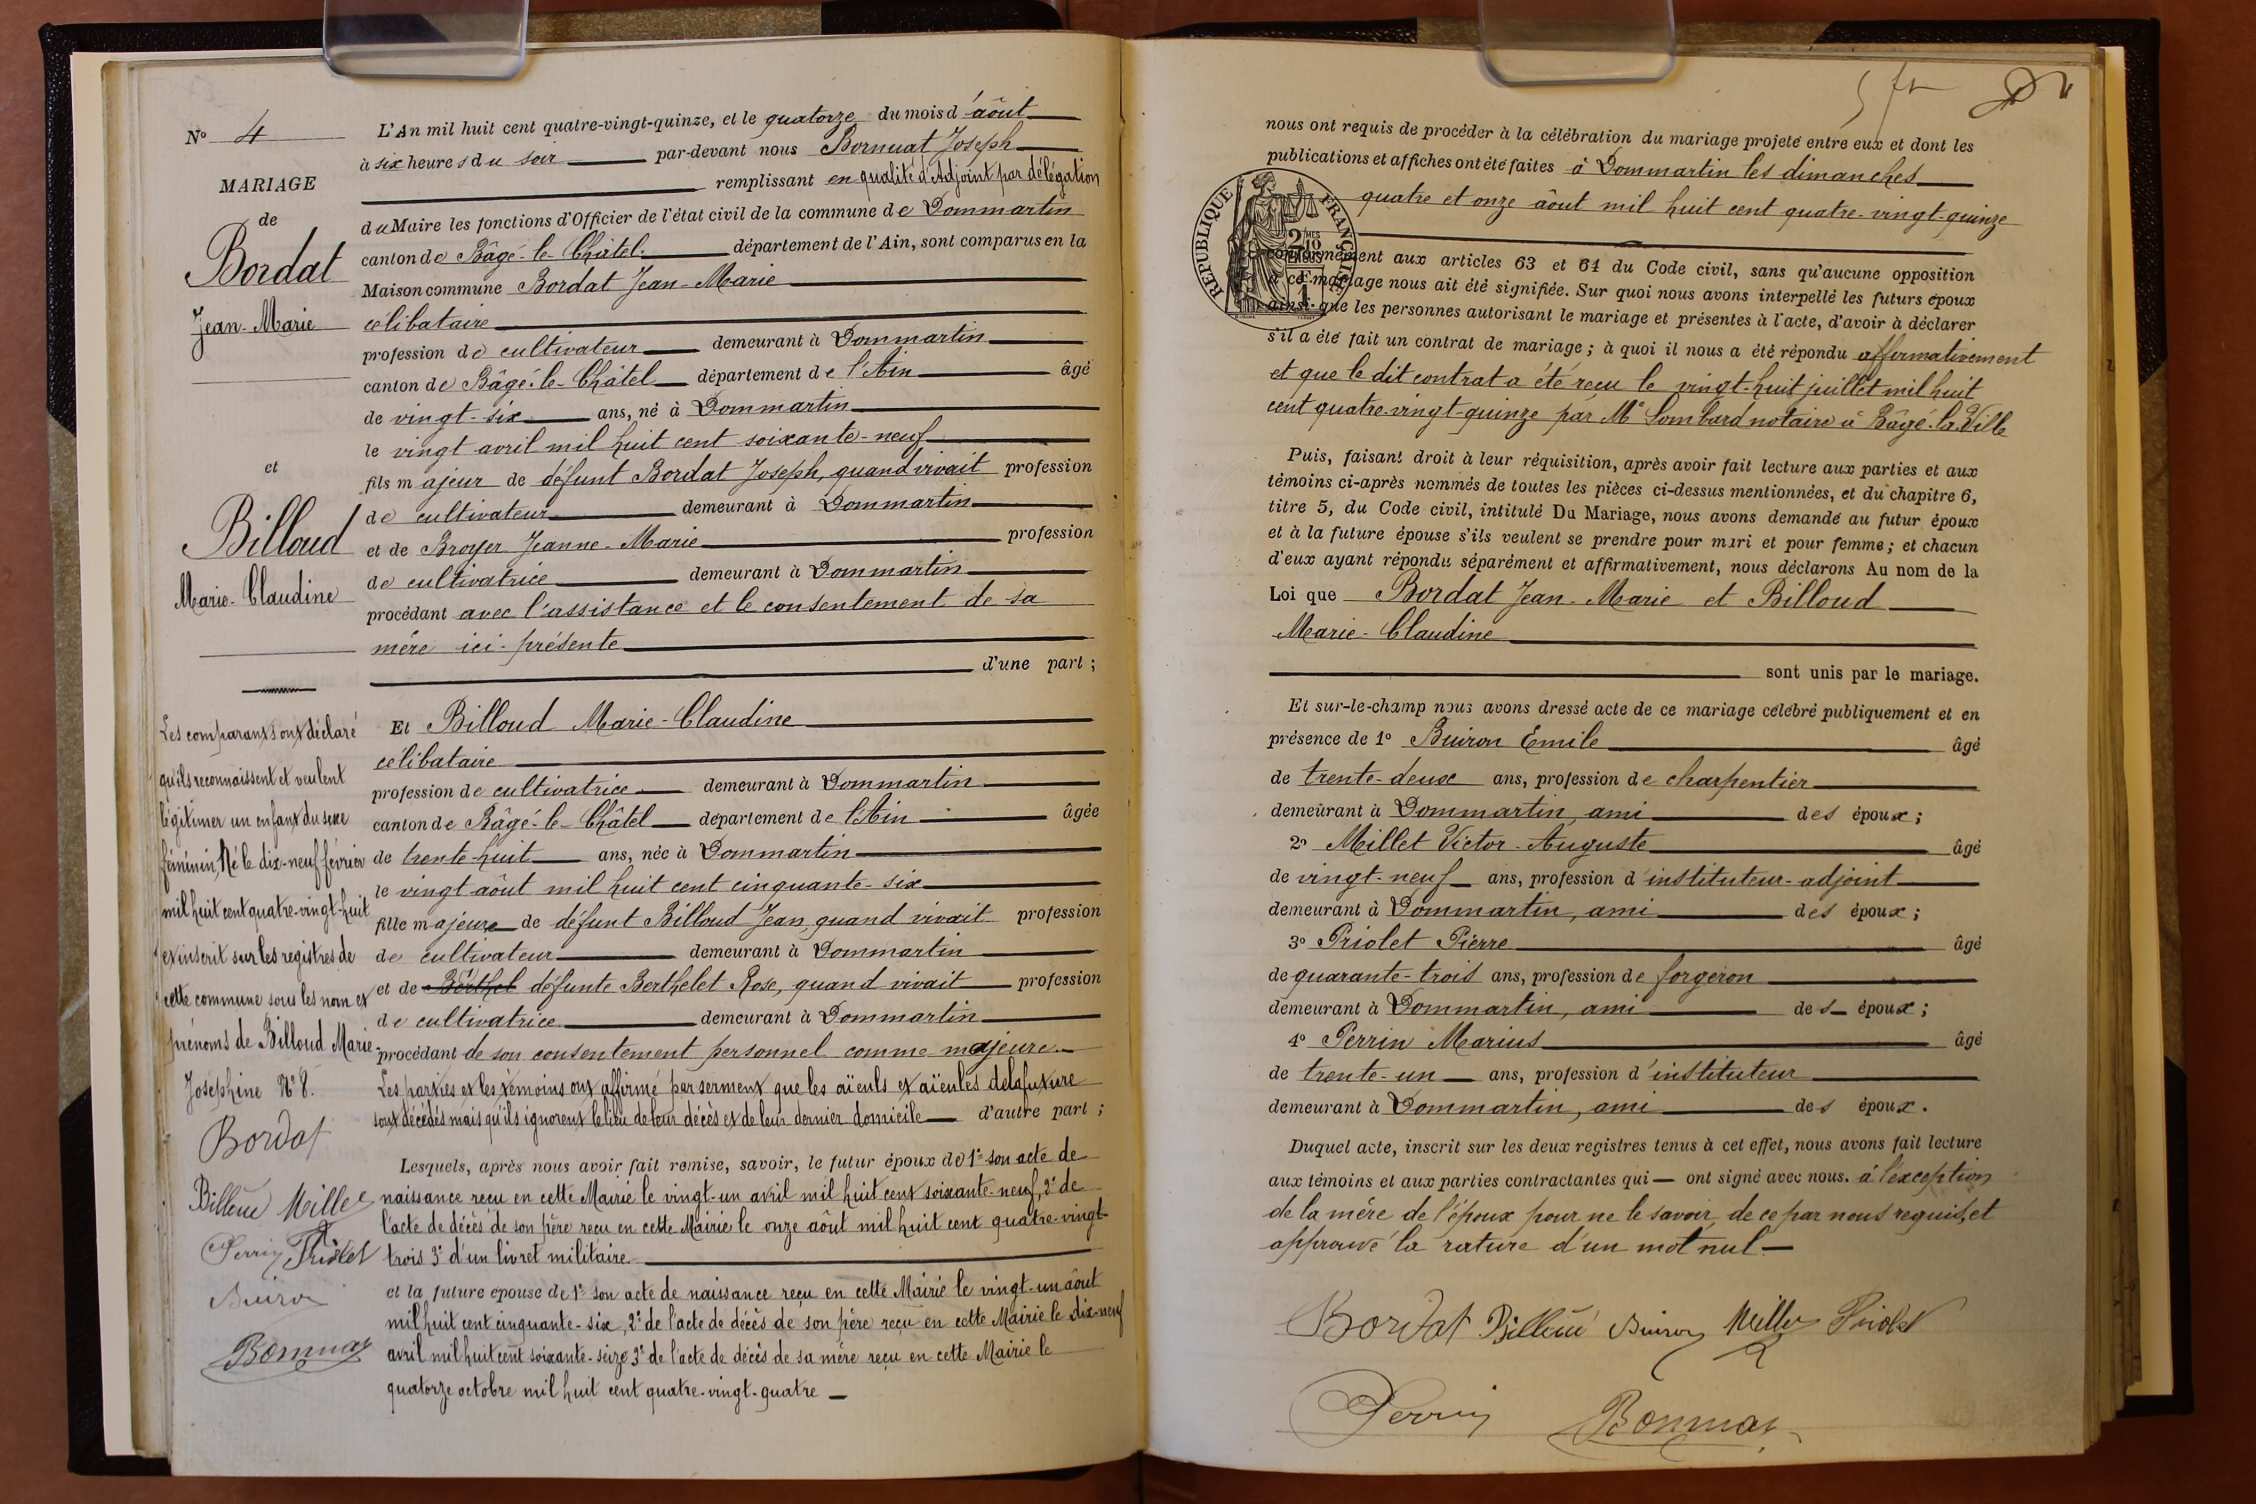 N° 4
MARIAGE
de
Bordat
Jean-Marie
et
Billoud
Marie-Claudine
Les comparants ont déclaré
qu'ils reconnaissent et veulent
légitimer un enfant du sexe
féminin, Né le dix-neuf février
mil huit cent quatre-vingt-huit
et inscrit sur les registres de
cette commune sous les nom et
prénoms de Billoud Marie-
Josephine N° 8.
Bordat
Billoud Millet
Perrin Priolet
Buiron
Bornuat
L'An mil huit cent quatre-vingt-quinze, et le quatorze du mois d'août
à six heures du soir par-devant nous Bornuat Joseph
remplissant en qualité d'Adjoint par délégation
du Maire les fonctions d'Officier de l'état civil de la commune de Dommartin
canton de Bâgé-le-Châtel département de l'Ain, sont comparus en la
Maison commune Bordat Jean-Marie
célibataire
profession de cultivateur demeurant à Dommartin
canton de Bâgé-le-Châtel département de l'Ain âgé
de vingt-six ans, né à Dommartin
le vingt avril mil huit cent soixante-neuf
fils majeur de défunt Bordat Joseph, quand vivait profession
de cultivateur demeurant à Dommartin
et de Broyer Jeanne-Marie profession
de cultivatrice demeurant à Dommartin
procédant avec l'assistance et le consentement de sa
mère ici-présente
d'une part ;
Et Billoud Marie-Claudine
célibataire
profession de cultivatrice demeurant à Dommartin
canton de Bâgé-le-Châtel département de l'Ain âgée
de trente-huit ans, née à Dommartin
le vingt août mil huit cent cinquante-six
fille majeure de défunt Billoud Jean, quand vivait profession
de cultivateur demeurant à Dommartin
et de Berthel défunte Berthelet Rose, quand vivait profession
de cultivatrice demeurant à Dommartin
procédant de son consentement personnel comme majeure
Les parties et les témoins ont affirmé par serment que les aïeuls et aïeules de la future
sont décédés mais qu'ils ignorent le lieu de leur décès et de leur dernier domicile d'autre part ;
Lesquels, après nous avoir fait remise, savoir, le futur époux de 1° son acte de
naissance reçu en cette Mairie le vingt-un avril mil huit cent soixante-neuf, 2° de
l'acte de décès de son père reçu en cette Mairie le onze août mil huit cent quatre-vingt-
trois 3° d'un livret militaire
et la future épouse de 1° son acte de naissance reçu en cette Mairie le vingt-un août
mil huit cent cinquante-six, 2° de l'acte de décès de son père reçu en cette Mairie le dix-neuf
avril mil huit cent soixante-seize 3° de l'acte de décès de sa mère reçu en cette Mairie le
quatorze octobre mil huit cent quatre-vingt-quatre
nous ont requis de procéder à la célébration du mariage projeté entre eux et dont les
publications et affiches ont été faites à Dommartin les dimanches
quatre et onze août mil huit cent quatre-vingt-quinze
RÉPUBLIQUE FRANÇAISE
conformément aux articles 63 et 64 du Code civil, sans qu'aucune opposition
à ce mariage nous ait été signifiée. Sur quoi nous avons interpellé les futurs époux
ainsi que les personnes autorisant le mariage et présentes à l'acte, d'avoir à déclarer
s'il a été fait un contrat de mariage ; à quoi il nous a été répondu affirmativement
et que le dit contrat a été reçu le vingt-huit juillet mil huit
cent quatre-vingt-quinze par Me Lombard notaire à Bâgé-la-Ville
Puis, faisant droit à leur réquisition, après avoir fait lecture aux parties et aux
témoins ci-après nommés de toutes les pièces ci-dessus mentionnées, et du chapitre 6,
titre 5, du Code civil, intitulé Du Mariage, nous avons demandé au futur époux
et à la future épouse s'ils veulent se prendre pour mari et pour femme ; et chacun
d'eux ayant répondu séparément et affirmativement, nous déclarons Au nom de la
Loi que Bordat Jean-Marie et Billoud
Marie-Claudine
sont unis par le mariage.
Et sur-le-champ nous avons dressé acte de ce mariage célébré publiquement et en
présence de 1° Buiron Emile âgé
de trente-deux ans, profession de charpentier
demeurant à Dommartin, ami des époux ;
2° Millet Victor-Auguste âgé
de vingt-neuf ans, profession d'instituteur-adjoint
demeurant à Dommartin, ami des époux ;
3° Priolet Pierre âgé
de quarante-trois ans, profession de forgeron
demeurant à Dommartin, ami des époux ;
4° Perrin Marius âgé
de trente-un ans, profession d'instituteur
demeurant à Dommartin, ami des époux.
Duquel acte, inscrit sur les deux registres tenus à cet effet, nous avons fait lecture
aux témoins et aux parties contractantes qui ont signé avec nous. à l'exception
de la mère de l'époux pour ne le savoir, de ce par nous requis, et
approuvé la rature d'un mot nul
Bordat Billoud Buiron Millet Priolet
Perrin Bornuat